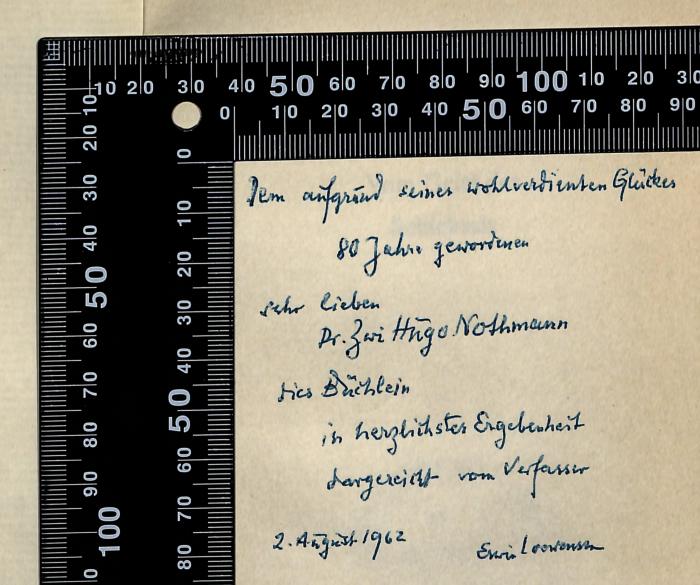 10 20 30 40 50 60 70 80 90 100 10 20 30
0 10 20 30 40 50 60 70 80 90
10 20 30 40 50 60 70 80 90 100 0
0 10 20 30 40 50 60 70 80
Dem aufgrund seines wohlverdienten Glückes
80 Jahre gewordenen
sehr lieben
Dr. Zwi Hugo Nothmann
dies Büchlein
in herzlichster Ergebenheit
dargereicht vom Verfasser
2. August 1962 Erwin Loewenson